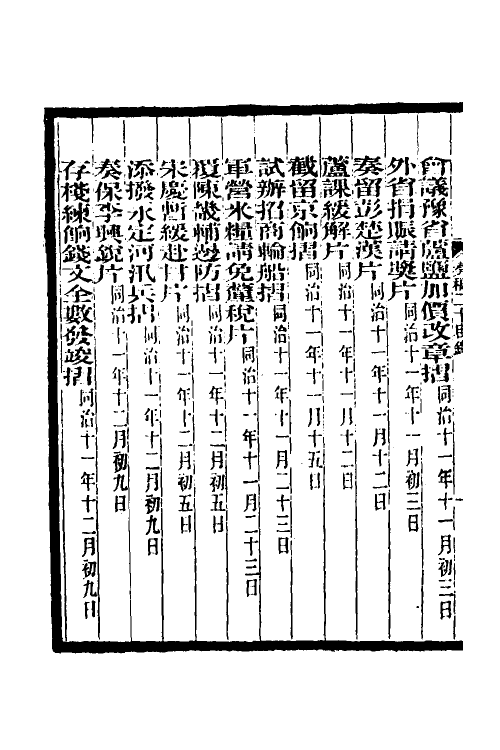 會議豫省蘆鹽加價改章摺 同治十一年十一月初三日
外省捐賑請獎片 同治十一年十一月初三日
奏留彭楚漢片 同治十一年十一月十二日
蘆課緩解片 同治十一年十一月十二日
截留京餉摺 同治十一年十一月十五日
試辦招商輪船摺 同治十一年十一月二十三日
軍營米糧請免釐稅片 同治十一年十一月二十三日
覆陳畿輔邊防摺 同治十一年十二月初五日
宋慶暫緩赴甘片 同治十一年十二月初五日
添撥永定河汛兵摺 同治十一年十二月初九日
奏保李興銳片 同治十一年十二月初九日
存棧練餉錢文全數發竣摺 同治十一年十二月初九日